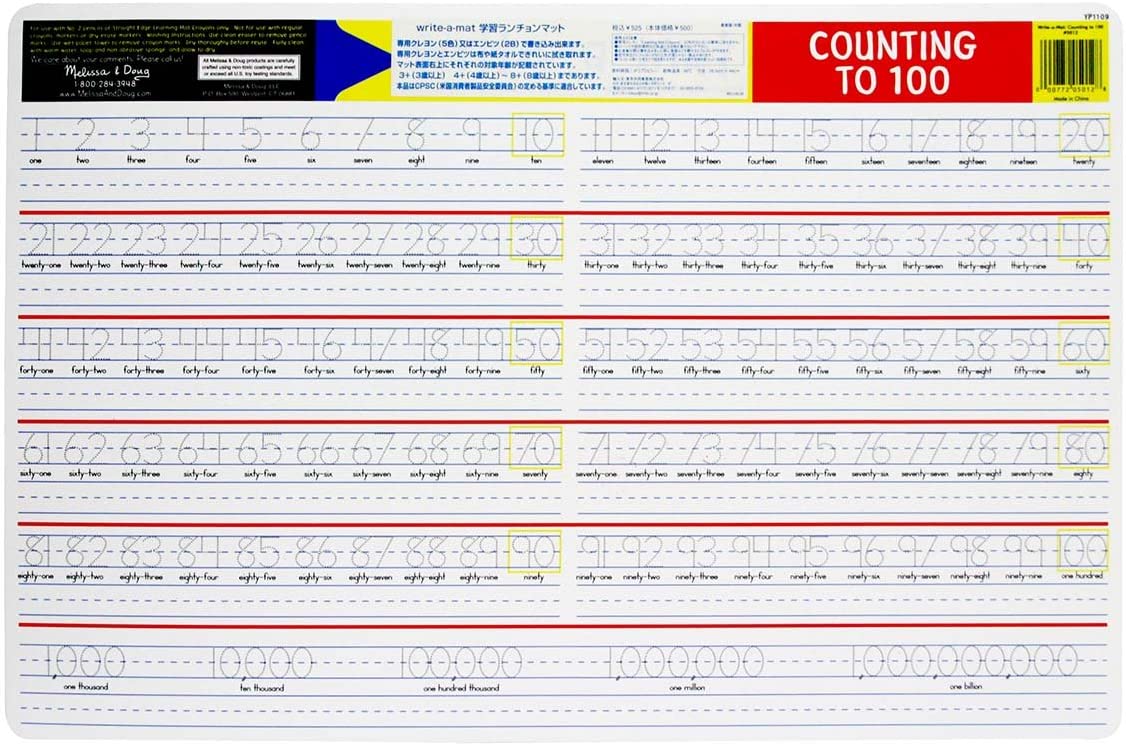 YP1109
For use with No. 2 pencils or Straight Edge Learning Mat Crayons only. Not for use with regular
crayons, markers or dry erase markers. Washing Instructions: Use clean eraser to remove pencil
marks. Use wet paper towel to remove crayon marks. Dry thoroughly before reuse. Fully clean
with warm water, soap and non abrasive sponge and allow to dry.
We care about your comments. Please call us!
Melissa & Doug
1-800-284-3948
www.MelissaAndDoug.com
All Melissa & Doug products are carefully
crafted using non-toxic coatings and meet
or exceed all U.S. toy testing standards.
Melissa & Doug, LLC
P.O. Box 590, Westport, CT 06881
write-a-mat 学習ランチョンマット
専用クレヨン(5色)又はエンピツ(2B)で書き込み出来ます。
専用クレヨンとエンピツは布や紙タオルできれいに拭き取れます。
マット表面右上にそれぞれの対象年齢が記載されています。
3+(3歳以上) 4+(4歳以上)~ 8+(8歳以上)まであります。
本品はCPSC(米国消費者製品安全委員会)の定める基準に適合しています。
税込¥525 (本体価格¥500)
COUNTING
TO 100
Write-a-Mat: Counting to 100
#5012
0 00772 05012 8
Made in China
1 2 3 4 5 6 7 8 9 10
one two three four five six seven eight nine ten
11 12 13 14 15 16 17 18 19 20
eleven twelve thirteen fourteen fifteen sixteen seventeen eighteen nineteen twenty
21 22 23 24 25 26 27 28 29 30
twenty-one twenty-two twenty-three twenty-four twenty-five twenty-six twenty-seven twenty-eight twenty-nine thirty
31 32 33 34 35 36 37 38 39 40
thirty-one thirty-two thirty-three thirty-four thirty-five thirty-six thirty-seven thirty-eight thirty-nine forty
41 42 43 44 45 46 47 48 49 50
forty-one forty-two forty-three forty-four forty-five forty-six forty-seven forty-eight forty-nine fifty
51 52 53 54 55 56 57 58 59 60
fifty-one fifty-two fifty-three fifty-four fifty-five fifty-six fifty-seven fifty-eight fifty-nine sixty
61 62 63 64 65 66 67 68 69 70
sixty-one sixty-two sixty-three sixty-four sixty-five sixty-six sixty-seven sixty-eight sixty-nine seventy
71 72 73 74 75 76 77 78 79 80
seventy-one seventy-two seventy-three seventy-four seventy-five seventy-six seventy-seven seventy-eight seventy-nine eighty
81 82 83 84 85 86 87 88 89 90
eighty-one eighty-two eighty-three eighty-four eighty-five eighty-six eighty-seven eighty-eight eighty-nine ninety
91 92 93 94 95 96 97 98 99 100
ninety-one ninety-two ninety-three ninety-four ninety-five ninety-six ninety-seven ninety-eight ninety-nine one hundred
1,000 10,000 100,000 1,000,000 1,000,000,000
one thousand ten thousand one hundred thousand one million one billion